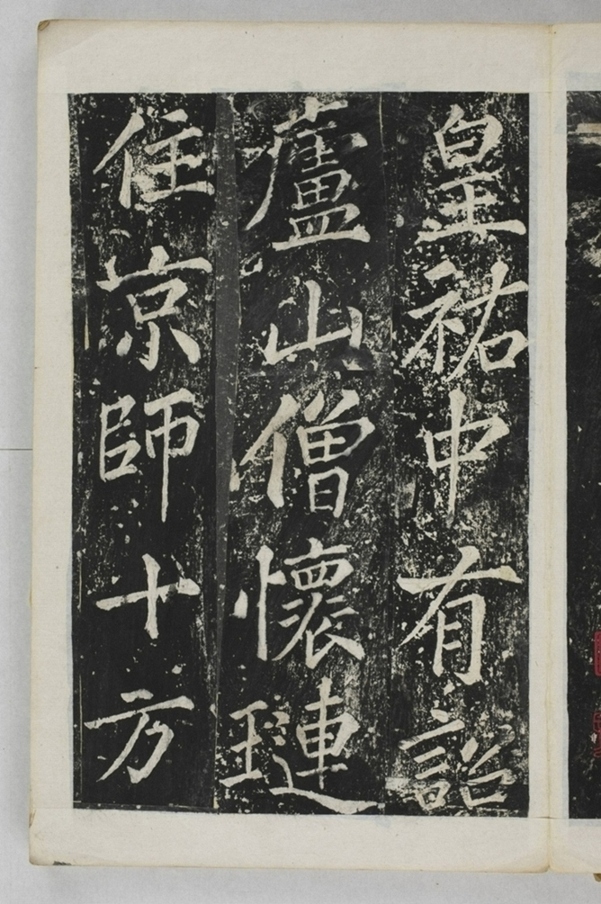 皇祐中有詔
廬山僧懷璉
住京師十方